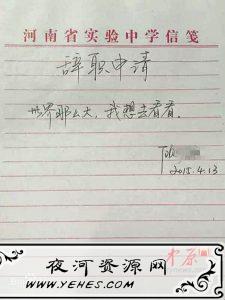 河南省实验中学信笺
辞职申请
世界那么大，我想去看看.
2015.4.13
中原
夜河资源网
www.YEHES.com